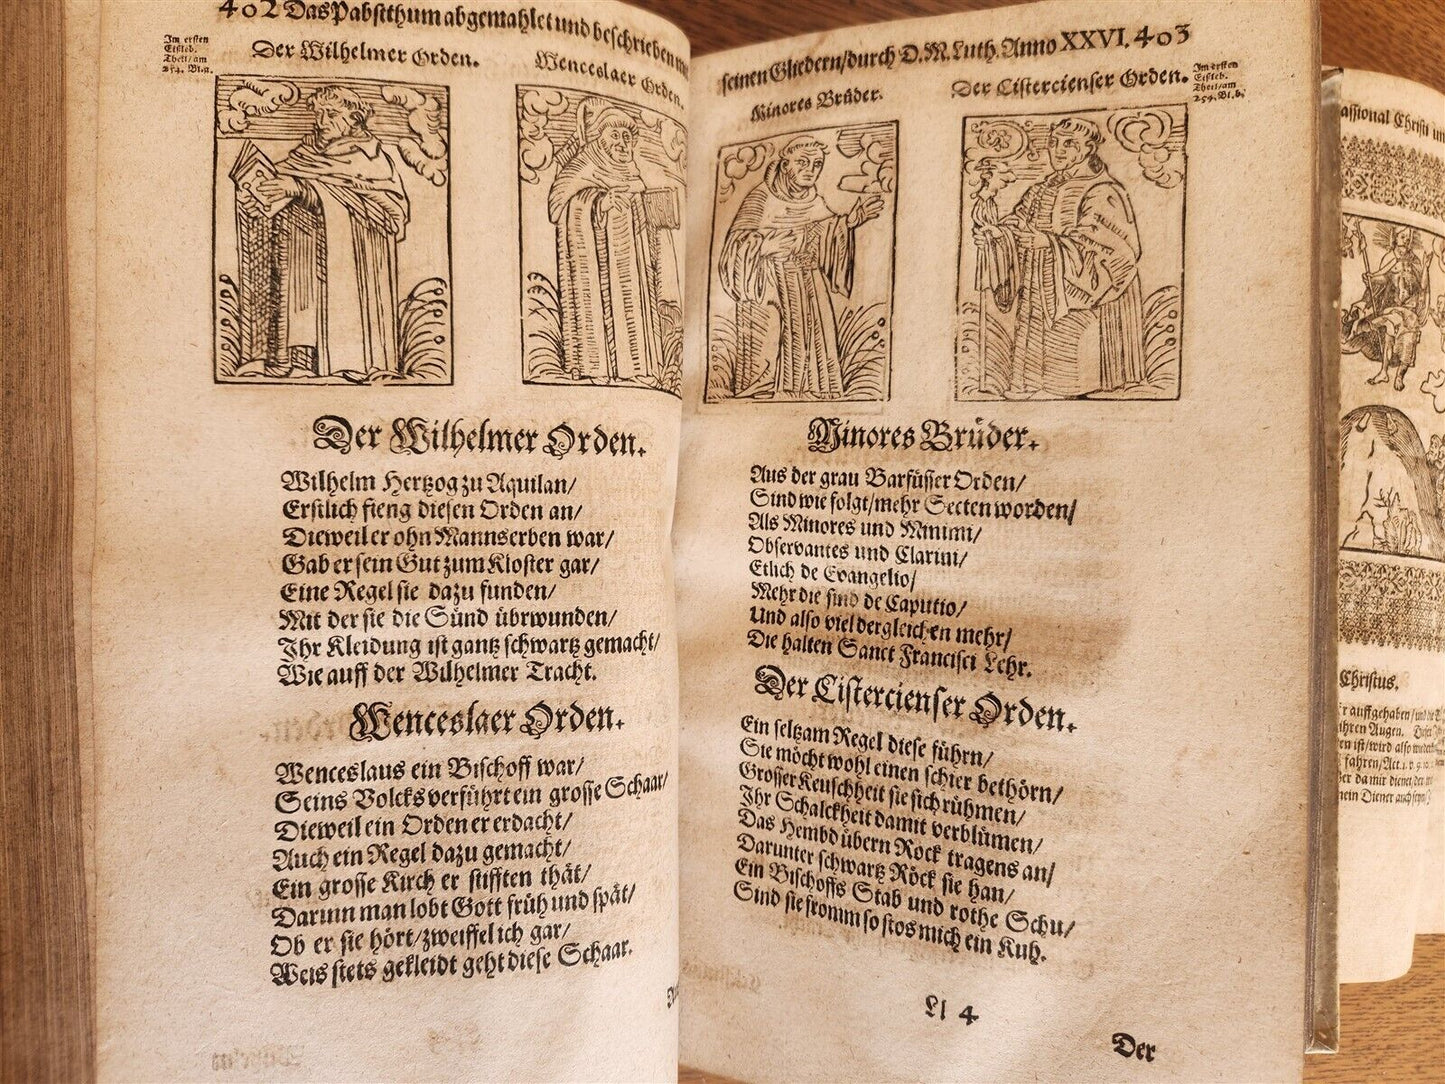 402 Das Pabstthum abgemahlet und beschrieben
Im ersten
Eißleb.
Theil/am
254. Bl.a.
Der Wilhelmer Orden.
Wenceslaer Orden.
Der Wilhelmer Orden.
Wilhelm Hertzog zu Aquilan/
Erstlich fieng diesen Orden an/
Dieweil er ohn Mannserben war/
Gab er sein Gut zum Kloster gar/
Eine Regel sie dazu funden/
Mit der sie die Sünd übrwunden/
Ihr Kleidung ist gantz schwartz gemacht/
Wie auff der Wilhelmer Tracht.
Wenceslaer Orden.
Wenceslaus ein Bischoff war/
Seins Volcks verführt ein grosse Schaar/
Dieweil ein Orden er erdacht/
Auch ein Regel dazu gemacht/
Ein grosse Kirch er stifften thät/
Darum man lobt Gott früh und spät/
Ob er sie hört/zweiffel ich gar/
Weis stets gekleidt geht diese Schaar.
seinen Gliedern/durch D.M. Luth. Anno XXVI. 403
Im ersten
Eißleb.
Theil/am
254. Bl.b.
Minores Brüder.
Der Cistercienser Orden.
Minores Brüder.
Aus der grau Barfüsser Orden/
Sind wie folgt/mehr Secten worden/
Als Minores und Minimi/
Observantes und Clarini/
Etlich de Evangelio/
Mehr die sind de Caputio/
Und also viel dergleichen mehr/
Die halten Sanct Francisci Lehr.
Der Cistercienser Orden.
Ein seltzam Regel diese führn/
Sie möcht wohl einen schier bethörn/
Grosser Keuschheit sie sich rühmen/
Ihr Schalckheit damit verblümen/
Das Hembd übern Rock tragens an/
Darunter schwartz Röck sie han/
Ein Bischoffs Stab und rothe Schu/
Sind sie fromm so stos mich ein Kuh.
Ll 4
Der
Passional Christi
Christus.
auffgehaben/und die
ihren Augen. Dieser
en ist/wird also
fahren/Act. 1. v. 9. 10.
da mir dienet/der
mein Diener auch seyn/